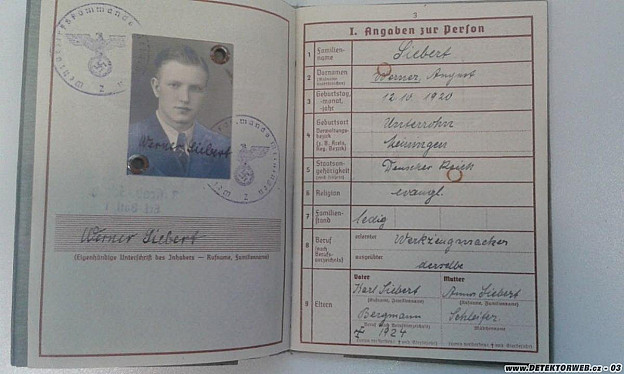 Wehrbezirkskommando
2
Werner Siebert
2
Werner Siebert
(Eigenhändige Unterschrift des Inhabers — Rufname, Familienname)
3
I. Angaben zur Person
1 Familien-
name
Siebert
2 Vornamen
(Rufname
unterstreichen)
Werner, August
3 Geburtstag,
-monat,
-jahr
12.10. 1920
4 Geburtsort
Verwaltungs-
bezirk
(z. B. Kreis,
Reg.-Bezirk)
Unterrohn
Meiningen
5 Staatsan-
gehörigkeit
Deutsches Reich
6 Religion
evangl.
7 Familien-
stand
ledig
8 Beruf
(nach
Berufs-
verzeichnis)
erlernter
Werkzeugmacher
ausgeübter
derselbe
9 Eltern
Vater
Mutter
Karl Siebert
Anna Siebert
(Rufname, Familienname)
(Rufname, Familienname)
Bergmann
Schleifer
(Beruf nach Berufsverzeichnis)
(Mädchenname)
1924
www.DETEKTORWEB.cz - 03